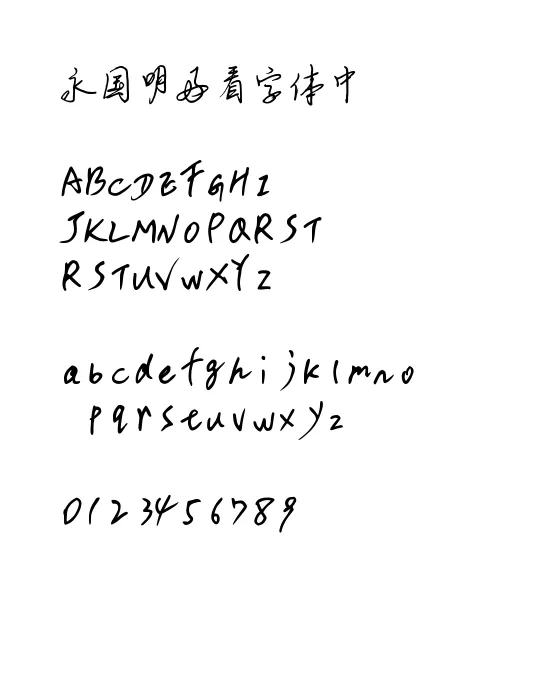 永国明好看字体中
ABCDEFGHI
JKLMNOPQRST
RSTUVWXYZ
abcdefghijklmno
pqrseuvwxyz
0123456789